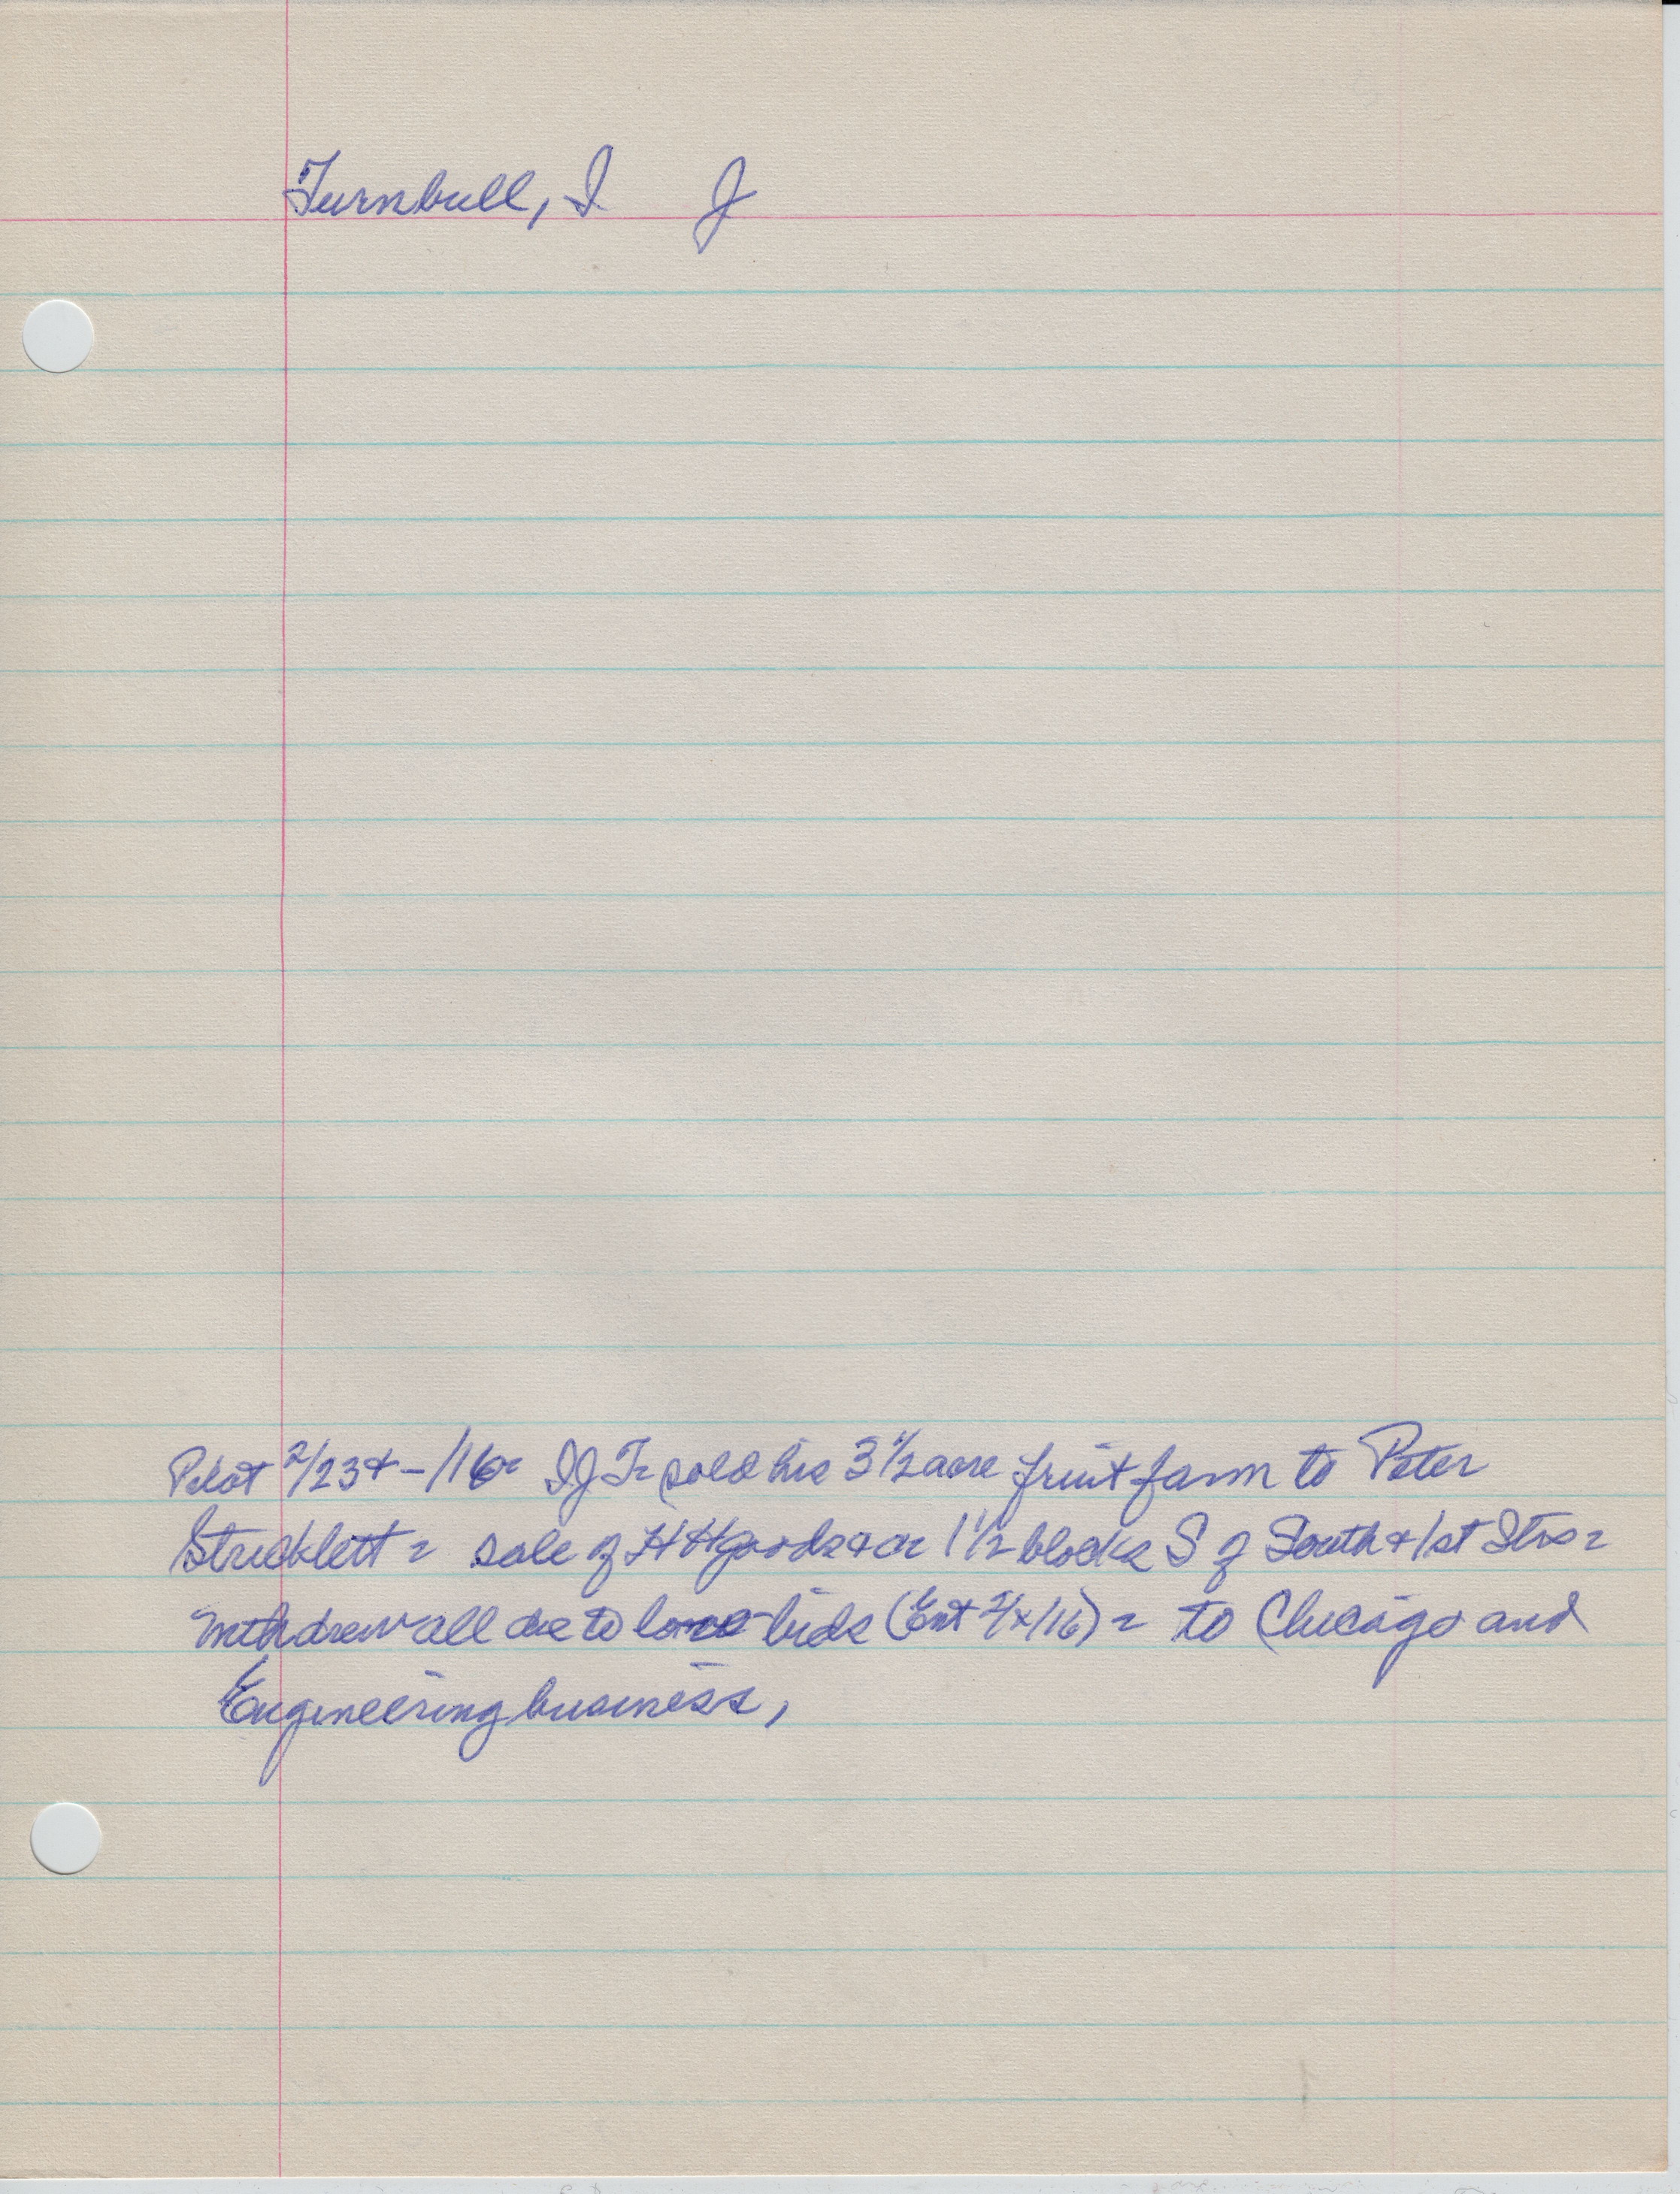 Turnbull, I J
Pilot 2/23+ - /16= IJT= sold his 3 1/2 acre fruit farm to Peter
Stricklett = sale of HHgoods + on 1 1/2 blocks S of South + 1st Sts =
Withdrew all due to low bids (Ent 2/x/16) = to Chicago and
Engineering business,